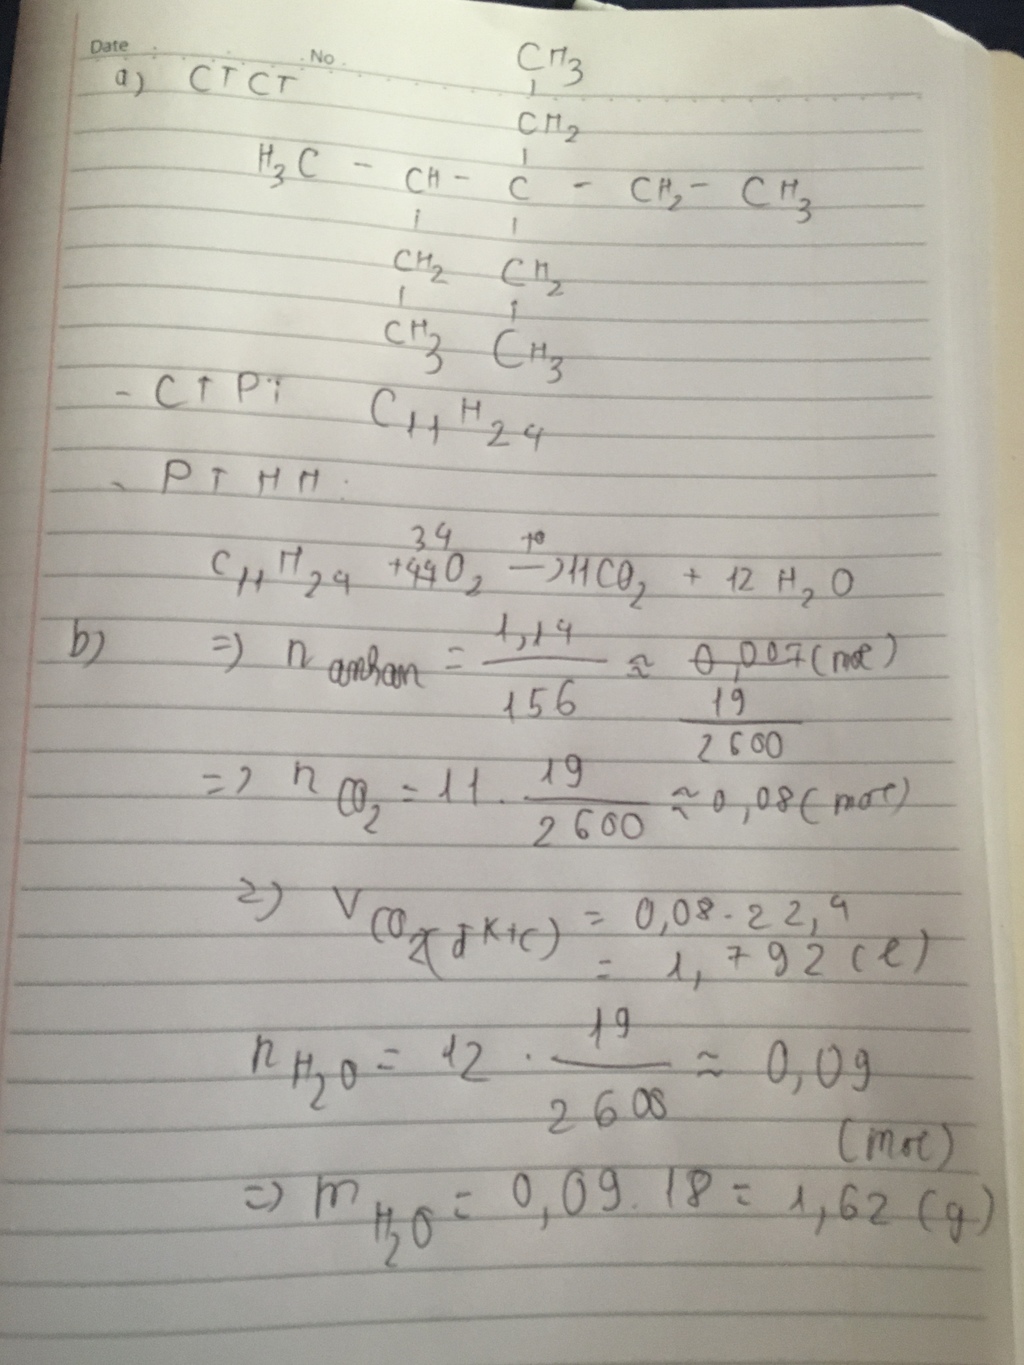 Date No.
a) CTCT
CH3
CH2
H3C - CH - C - CH2 - CH3
CH2 CH2
CH3 CH3
- CTPT C11H24
- PTHH:
34
C11H24 + O2 —t°→ 11CO2 + 12 H2O
b) => n ankan = 1,14 / 156 ≈ 0,007 (mol)
19 / 2600
=> n CO2 = 11 . 19 / 2600 ≈ 0,08 (mol)
=> V CO2 (đktc) = 0,08 . 22,4
= 1,792 (l)
n H2O = 12 . 19 / 2600 ≈ 0,09
(mol)
=> m H2O = 0,09 . 18 = 1,62 (g)